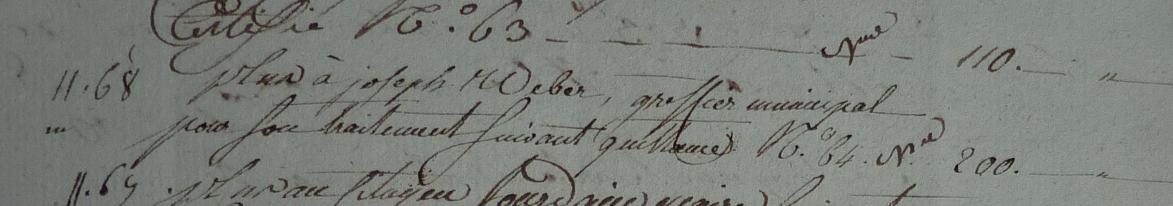 Certifié N.° 63 - - - - Nme - 110. - "
11.68 plus à joseph Weber, greffier municipal
" pour son traitement suivant quittance N.° 64. Nme 200. - "
11.69 plus au Citoyen